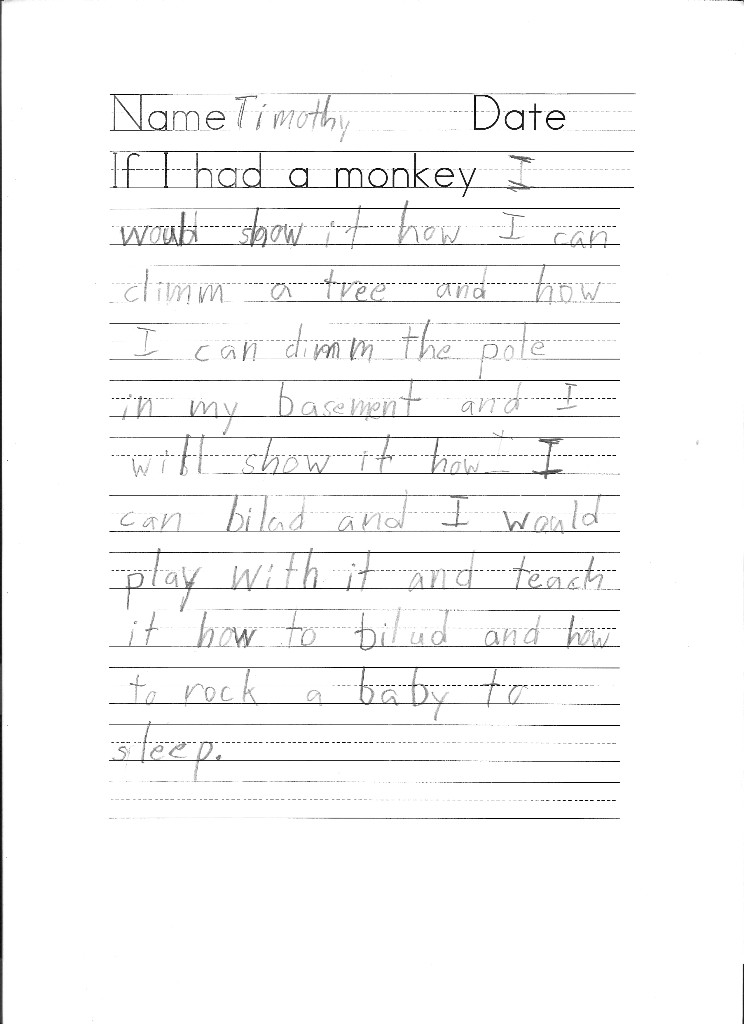 Name Timothy Date
If I had a monkey I
would show it how I can
climm a tree and how
I can climm the pole
in my basement and I
will show it how I
can bilad and I would
play with it and teach
it how to bilud and how
to rock a baby to
sleep.